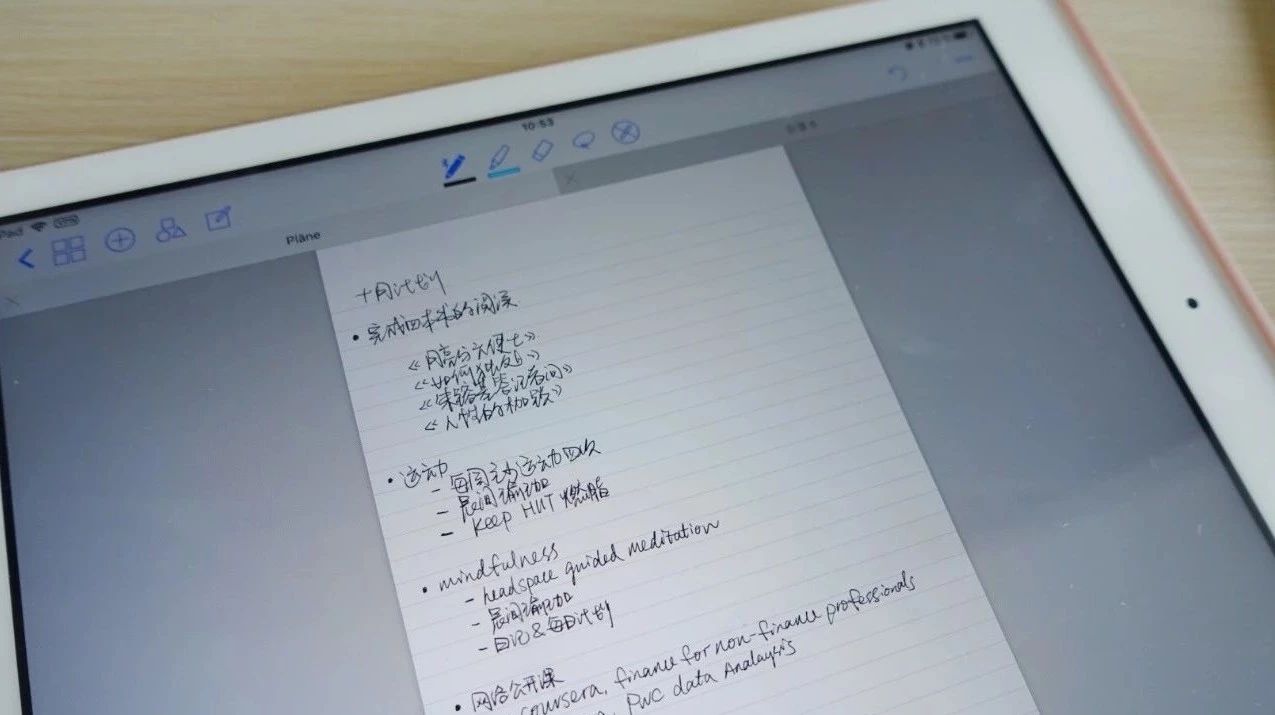 iPad
10:53
Pläne
十月计划
• 完成四本书的阅读
《月亮与六便士》
《如何独处》
《朱鹮是答记者问》
《人性的枷锁》
• 运动
- 每周主动运动四次
- 晨间瑜珈
- Keep HIIT 燃脂
• mindfulness
- headspace guided meditation
- 晨间瑜珈
- 日记&每日计划
• 网络公开课
coursera, finance for non-finance professionals
PwC data Analaysis